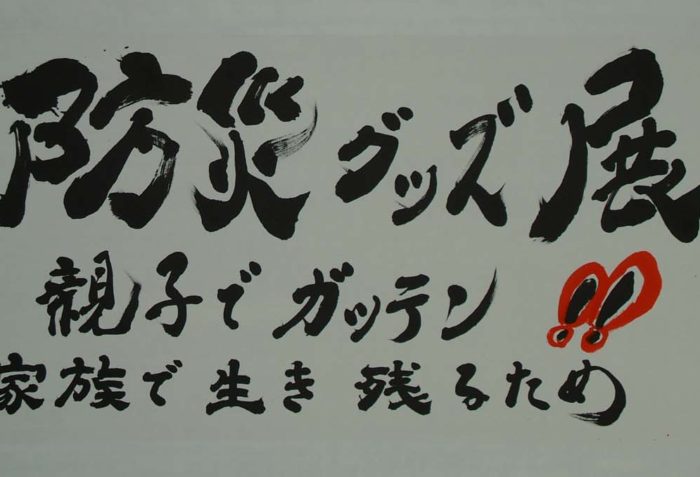 防災グッズ展
親子でガッテン!!
家族で生き残るため